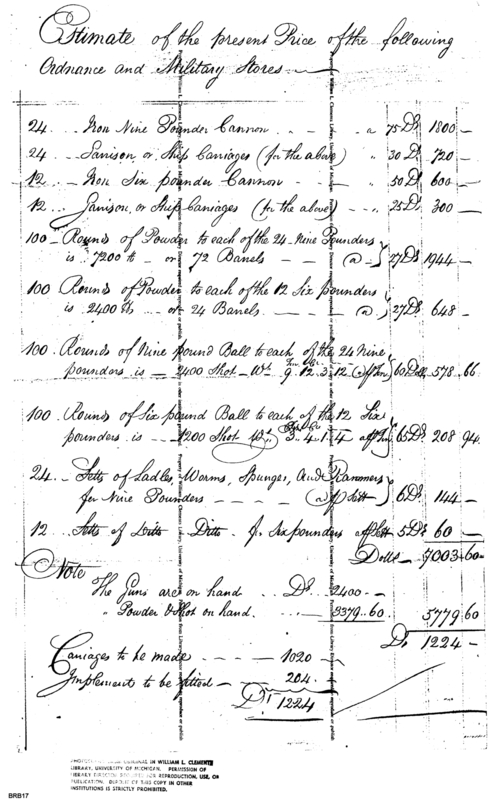 Estimate of the present Price of the following
Ordnance and Military Stores
24 Iron Nine Pounder Cannon a 75 Ds 1800
24 Garrison, or Ship Carriages (for the above) " 30 Ds 720
12 Iron Six pounder Cannon " 50 Ds 600
12 Garrison, or Ship Carriages (for the above) " 25 Ds 300
100 Rounds of Powder to each of the 24 Nine Pounders
is 7200 lb or 72 Barrels @ 27 Ds 1944
100 Rounds of Powder to each of the 12 Six pounders
is 2400 lb or 24 Barrels @ 27 Ds 648
100 Rounds of Nine pound Ball to each of the 24 Nine
pounders is 2400 Shot Wt 9. 12. 3. 12 60 Dolls 578 66
100 Rounds of Six pound Ball to each of the 12 Six
pounders is 1200 Shot Wt 3. 4. 1. 4 65 Ds 208 94
24 Setts of Ladles, Worms, Spunges, and Rammers
for Nine Pounders @ p Sett 6 Ds 144
12 Setts of Ditto Ditto for Six pounders a p Sett 5 Ds 60
Dolls 7003 60
Note
The Guns are on hand Ds 2400
" Powder & Shot on hand 3379. 60 5779 60
Ds 1224
Carriages to be made 1020
Implement to be fitted 204
Ds 1224
ORIGINAL IN WILLIAM L. CLEMENTS
LIBRARY, UNIVERSITY OF MICHIGAN. PERMISSION OF
LIBRARY DIRECTOR REQUIRED FOR REPRODUCTION, USE, OR
PUBLICATION. DEPOSIT OF THIS COPY IN OTHER
INSTITUTIONS IS STRICTLY PROHIBITED.
BRB17